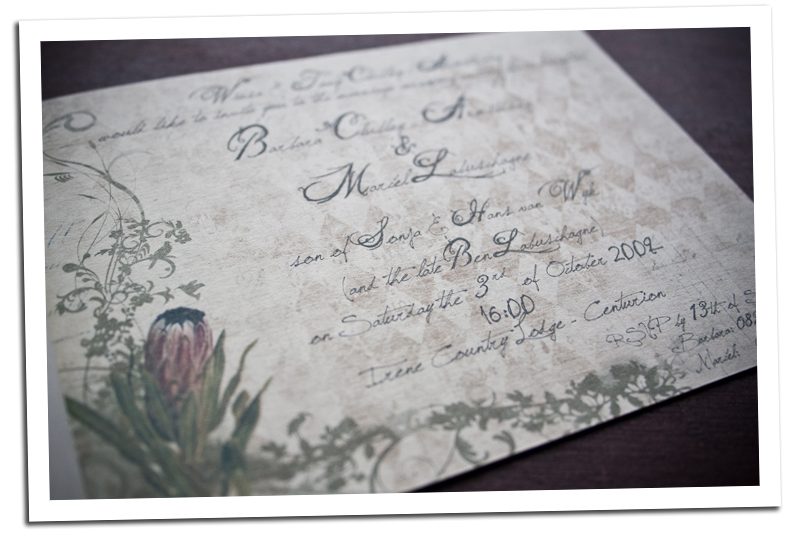 would like to invite you to the marriage
Barbara
&
Mariel Labuschagne
son of Sonja & Hans van Wyk
(and the late Ben Labuschagne)
on Saturday the 3rd of October 2009
16:00
Irene Country Lodge - Centurion
RSVP by 13th of S
Barbara: 082
Mariel: